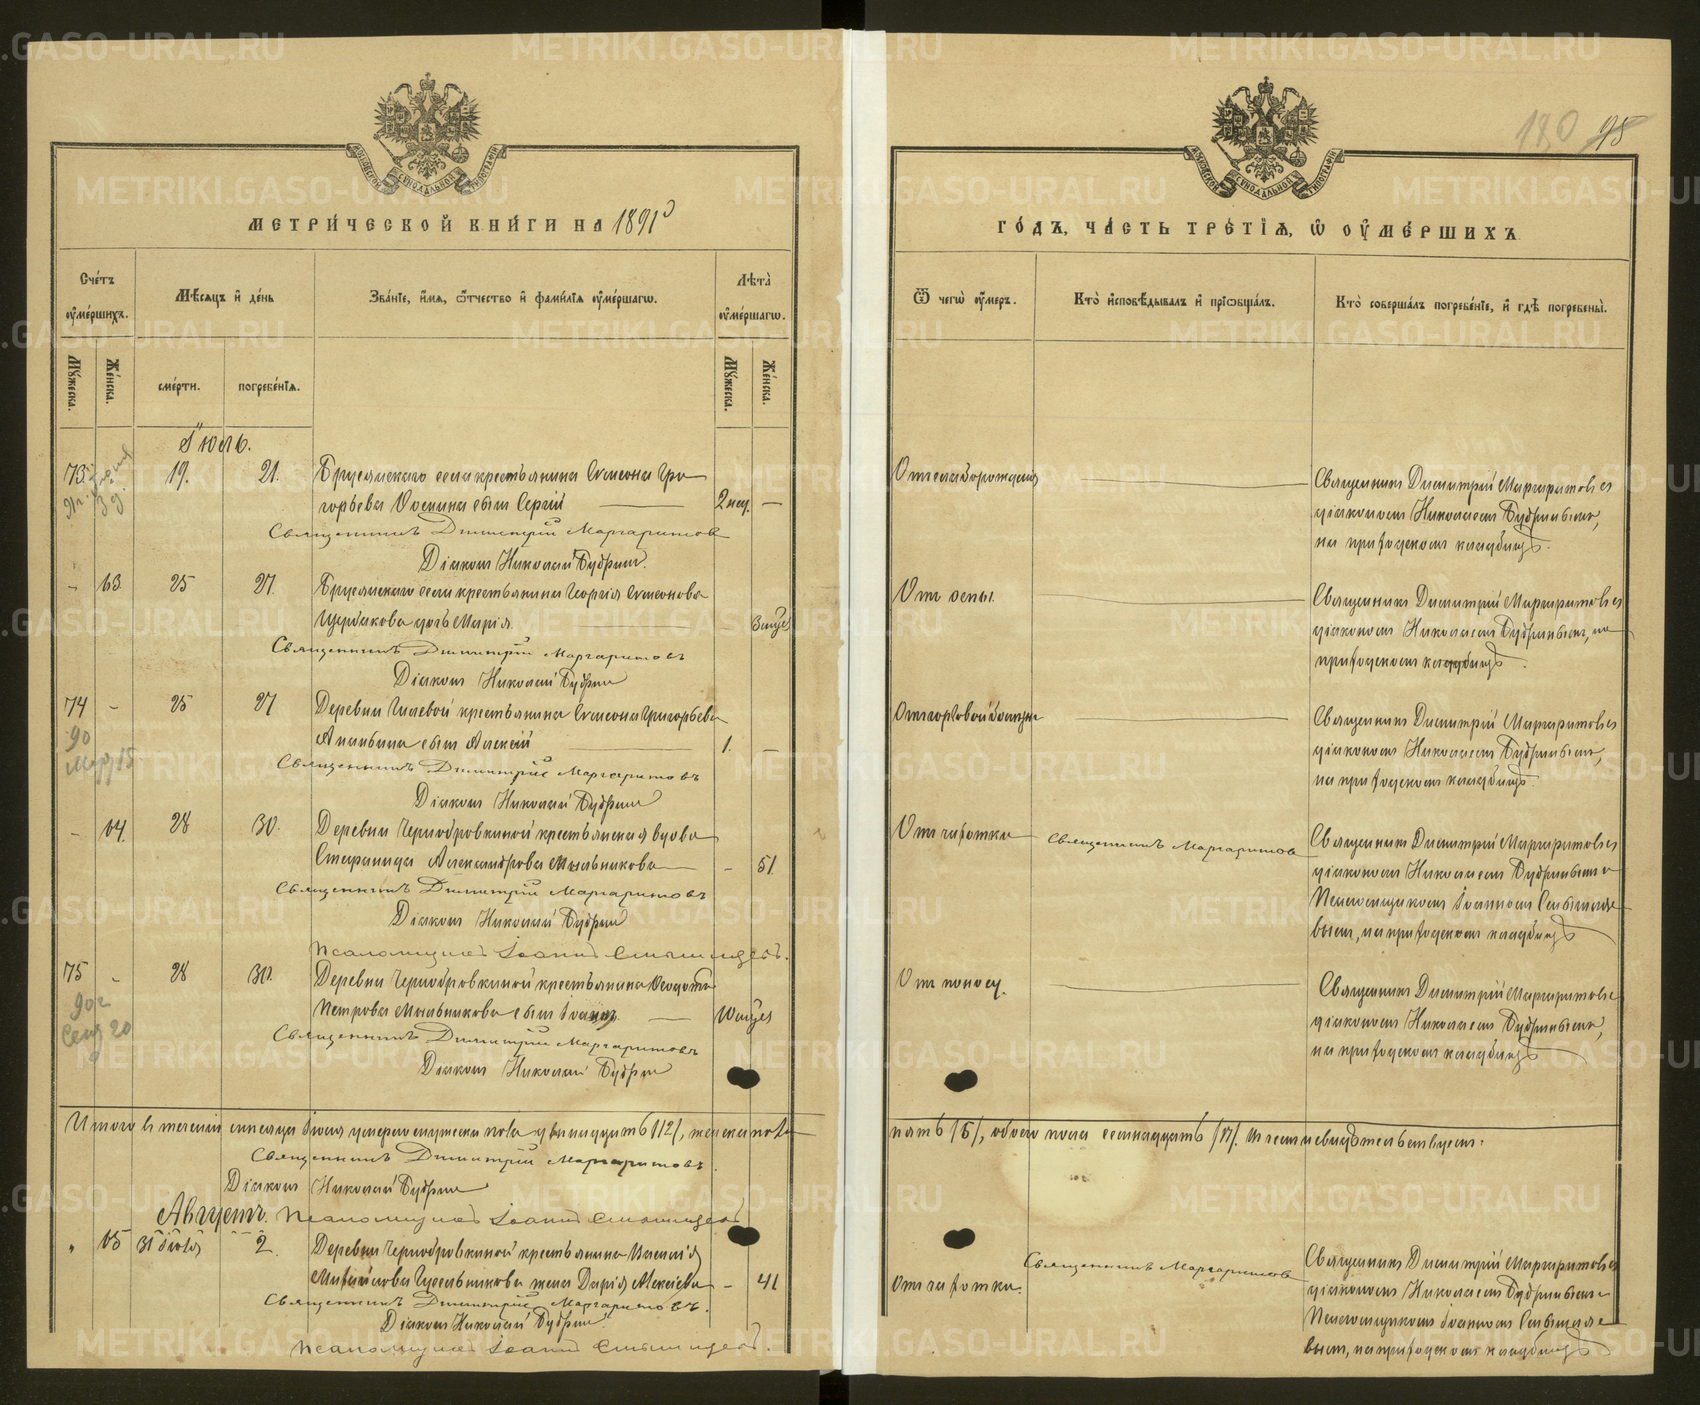 МЕТРИ́ЧЕСКОЙ КНИ́ГИ НА 1891
Сче́тъ ᲂу҆ме́ршихъ.
Мѣ́сяцъ и҆ де́нь
Зва́нїе, и҆́мя, ѻ҆́тчество и҆ фами́лїя ᲂу҆ме́ршагѡ.
Лѣта̀ ᲂу҆ме́ршагѡ.
Му́жеска.
Же́нска.
сме́рти.
погребе́нїя.
Му́жеска.
Же́нска.
Іюль.
73. 19. 21. Бруснянскаго села крестьянина Симеона Гри
горьева сынъ Сергій 2 нед. —
Священникъ Димитрій Маргаритовъ
Діаконъ Николай Бубринъ.
- 63. 25 27. Бруснянскаго села крестьянина Георгія Симеонова
Щербакова дочь Марія. - 3 мцс
Священникъ Димитрій Маргаритовъ
Діаконъ Николай Бубринъ
74 - 25 27 Деревни крестьянина Симеона Григорьева
сынъ Алексій 1. —
90
Мар 15
Священникъ Димитрій Маргаритовъ
Діаконъ Николай Бубринъ
- 64. 28 30. Деревни Чернобровкиной крестьянская вдова
Стефанида Александрова Мыльникова - 51
Священникъ Димитрій Маргаритовъ
Діаконъ Николай Бубринъ
Псаломщикъ Іоаннъ
75 - 28 30. Деревни Чернобровкиной крестьянина Ѳеодота
Петрова Мыльникова сынъ Іоаннъ 10 мцс
90 г
Сен 20
Священникъ Димитрій Маргаритовъ
Діаконъ Николай Бубринъ
Итого въ теченіи мѣсяца Іюля умерло мужеска пола двѣнадцать /12/, женска пола
Священникъ Димитрій Маргаритовъ.
Діаконъ Николай Бубринъ
Августъ. Псаломщикъ Іоаннъ
" 65 31 Іюля 2. Деревни Чернобровкиной крестьянина Василія
Михайлова жена Дарія Алексіева - 41
Священникъ Димитрій Маргаритовъ.
Діаконъ Николай Бубринъ
Псаломщикъ Іоаннъ
180 95
ГО́ДЪ, ЧА́СТЬ ТРЕ́ТЇѦ, Ѡ҆ ОУ҆МЕ́РШИХЪ
Ѿ чегѡ̀ ᲂу҆́меръ.
Кто̀ и҆сповѣ́дывалъ и҆ прїѡбща́лъ.
Кто̀ соверша́лъ погребе́нїе, и҆ гдѣ̀ погребены̀.
Отъ слаборожденія
Священникъ Димитрій Маргаритовъ съ
діакономъ Николаемъ Бубринымъ,
на приходскомъ кладбищѣ.
Отъ оспы.
Священникъ Димитрій Маргаритовъ съ
діакономъ Николаемъ Бубринымъ, на
приходскомъ кладбищѣ.
Отъ горловой болѣзни
Священникъ Димитрій Маргаритовъ съ
діакономъ Николаемъ Бубринымъ,
на приходскомъ кладбищѣ.
Отъ чахотки Священникъ Маргаритовъ
Священникъ Димитрій Маргаритовъ съ
діакономъ Николаемъ Бубринымъ и
Псаломщикомъ Іоанномъ
на приходскомъ кладбищѣ
Отъ поносу.
Священникъ Димитрій Маргаритовъ съ
діакономъ Николаемъ Бубринымъ,
на приходскомъ кладбищѣ
пять /5/, обоего пола семнадцать /17/. Въ семъ свидѣтельствуемъ:
Отъ чахотки. Священникъ Маргаритовъ
Священникъ Димитрій Маргаритовъ съ
діакономъ Николаемъ Бубринымъ и
Псаломщикомъ Іоанномъ
на приходскомъ кладбищѣ
METRIKI.GASO-URAL.RU